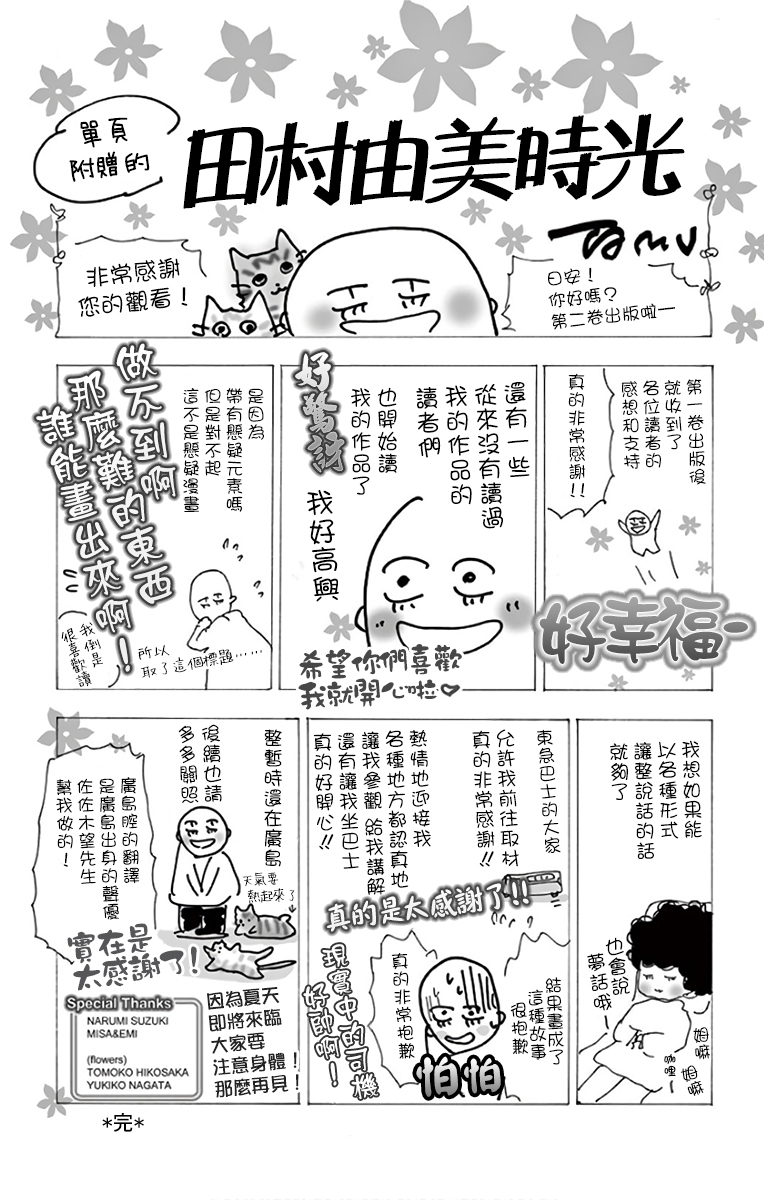 單頁
附贈的
田村由美時光
TAMU
日安!
你好嗎?
第二卷出版啦—
非常感謝
您的觀看!
第一卷出版後
就收到了
各位讀者的
感想和支持
真的非常感謝!!
好幸福~
還有一些
從來沒有讀過
我的作品的
讀者們
也開始讀
我的作品了
好驚訝
我好高興
希望你們喜歡
我就開心啦♡
是因為
帶有懸疑元素嗎
但是對不起
這不是懸疑漫畫
做不到啊
那麼難的東西
誰能畫出來啊!
所以
取了這個標題……
我倒是
很喜歡讀
我想如果能
以各種形式
讓整說話的話
就夠了
也會說
夢話哦!
姆嘛
姆嘛
咖哩—
東急巴士的大家
允許我前往取材
真的非常感謝!!
熱情地迎接我
各種地方都認真地
讓我參觀 給我講解
還有讓我坐巴士
真的好開心!!
真的是太感謝了!!
結果畫成了
這種故事
很抱歉
真的非常抱歉
怕怕
現實中的司機
好帥啊!
整暫時還在廣島
後續也請
多多關照
天氣要
熱起來了
廣島腔的翻譯
是廣島出身的聲優
佐佐木望先生
幫我做的!
實在是
太感謝了!
Special Thanks
NARUMI SUZUKI
MISA&EMI
(flowers)
TOMOKO HIKOSAKA
YUKIKO NAGATA
因為夏天
即將來臨
大家要
注意身體!
那麼再見!
*完*